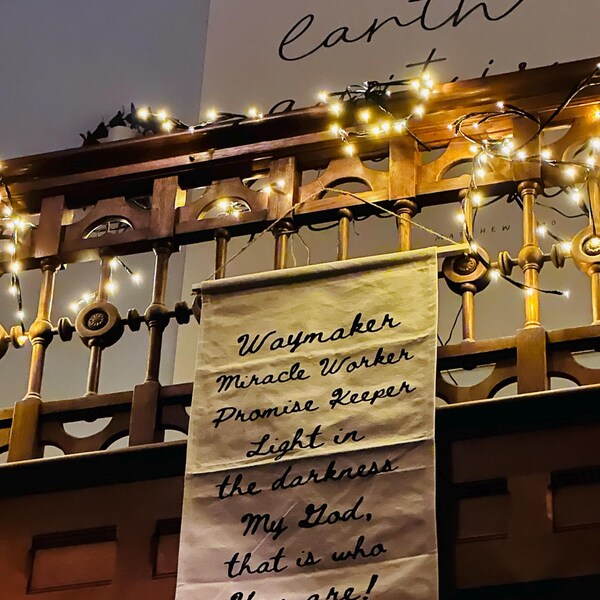 earth
as it is
MATTHEW
Waymaker
Miracle Worker
Promise Keeper
Light in
the darkness
My God,
that is who
You are!